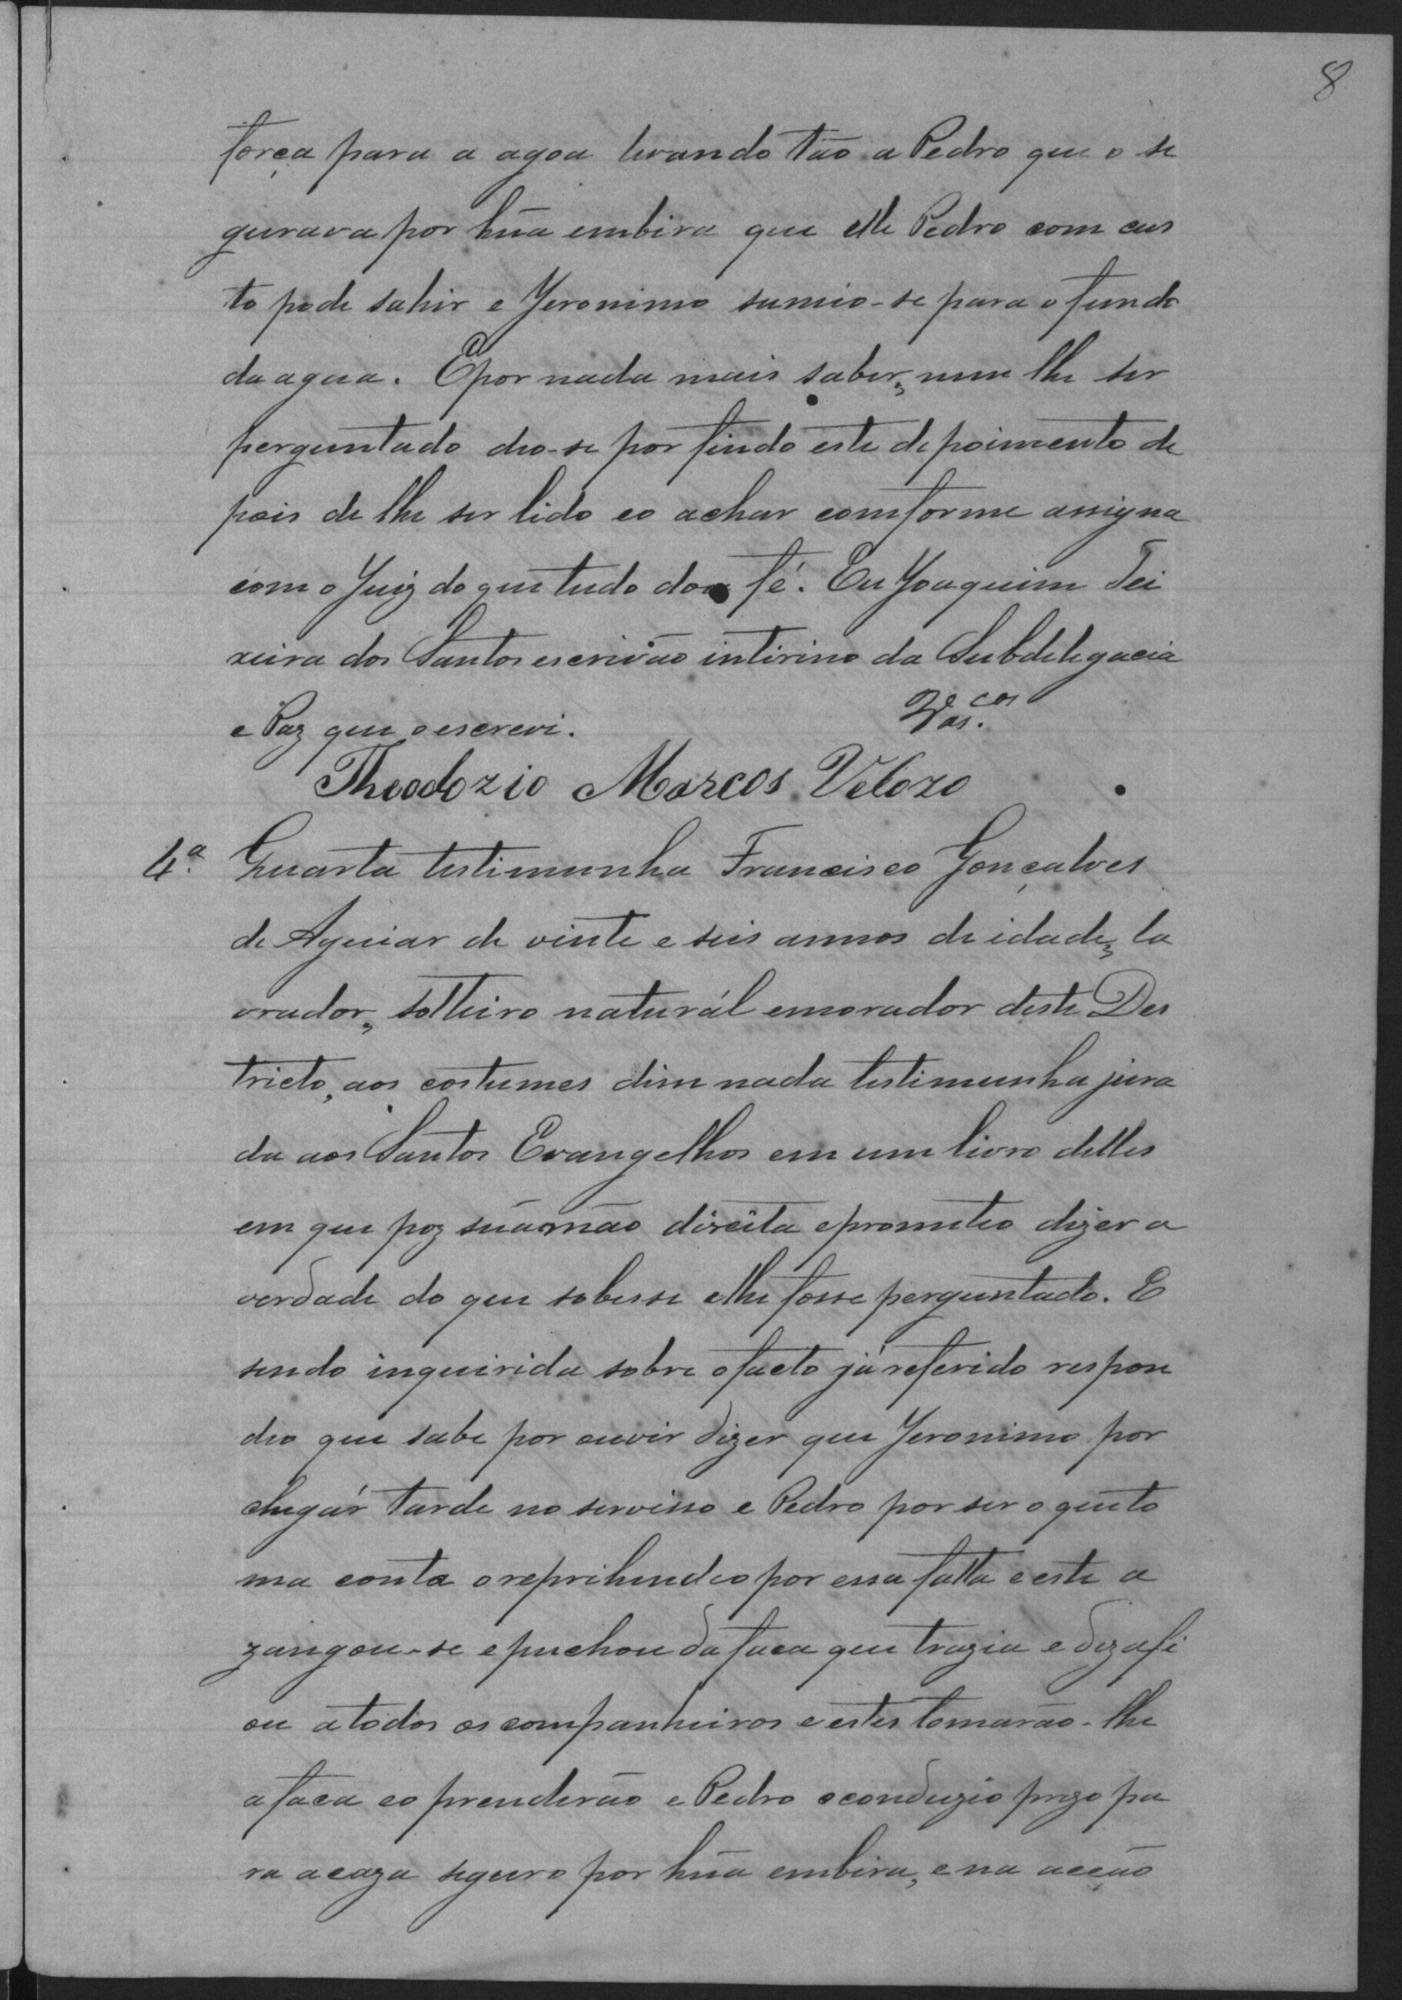 8
força para a agoa levando tão a Pedro que o se
gurava por hũa embira que elle Pedro com cus
to pode sahir e Jeronimo sumio-se para o fundo
da agua. E por nada mais saber, nem lhe ser
perguntado deo-se por findo este depoimento de
pois de lhe ser lido eo achar comforme assigna
com o Juiz do que tudo dou fé. Eu Joaquim Tei
xeira dos Santos escrivão intirino da Subdelegacia
e Paz que o escrevi.
Theodozio Marcos Velozo
4.ª Quarta testimunha Francisco Gonçalves
de Aguiar de vinte e seis annos de idade, la
vrador, solteiro naturál e morador deste Des
tricto, aos costumes dice nada testimunha jura
da aos Santos Evangelhos em um livro delles
em que poz sua mão direita e prometeo dizer a
verdade do que sobesse e lhe fosse perguntado. E
sendo inquirida sobre o facto já referido respon
deo que sabe por ouvir dizer que Jeronimo por
chegár tarde no servisso e Pedro por ser o que to
ma conta o reprihendeo por essa falta e este a
zangou-se e puchou da faca que trazia e dezafi
ou a todos os companheiros e estes tomarão-lhe
a faca eo prenderão e Pedro o conduzio prezo pa
ra a caza seguro por hũa embira, e na acção